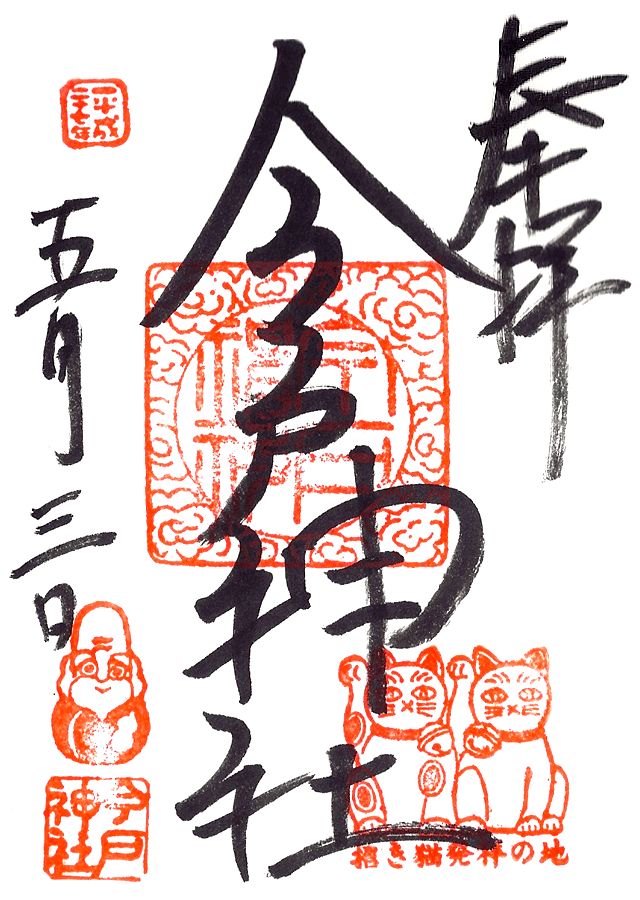 奉拝
今戸神社
平成
二十七年
五月三日
今戸
神社
招き猫発祥の地
今戸
神社